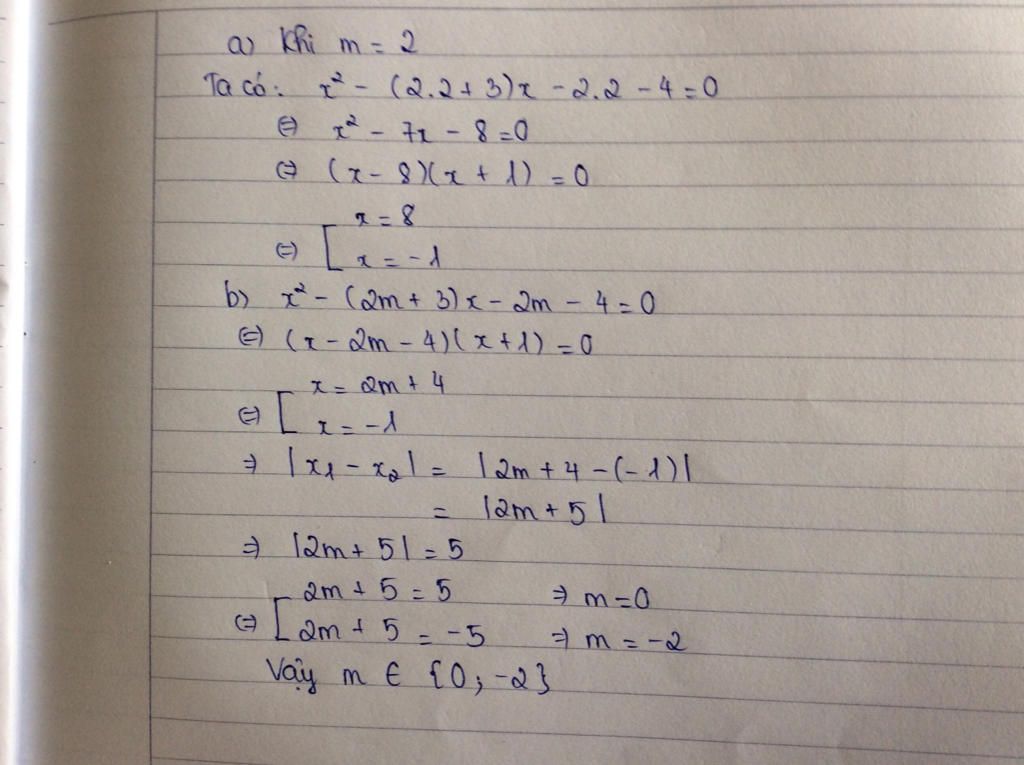 a) Khi m = 2
Ta có: x² - (2.2 + 3)x - 2.2 - 4 = 0
⇔ x² - 7x - 8 = 0
⇔ (x - 8)(x + 1) = 0
⇔ [ x = 8
x = -1
b) x² - (2m + 3)x - 2m - 4 = 0
⇔ (x - 2m - 4)(x + 1) = 0
⇔ [ x = 2m + 4
x = -1
⇒ |x₁ - x₂| = |2m + 4 - (-1)|
= |2m + 5|
⇒ |2m + 5| = 5
⇔ [ 2m + 5 = 5 ⇒ m = 0
2m + 5 = -5 ⇒ m = -2
Vậy m ∈ {0; -2}